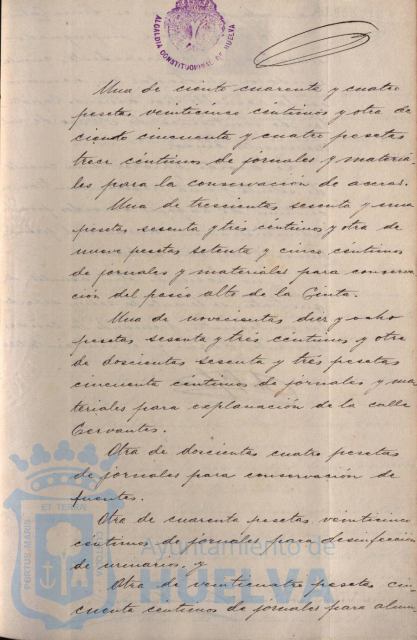 ALCALDIA CONSTITUCIONAL DE HUELVA
Una de ciento cuarenta y cuatro
pesetas veinticinco céntimos y otra de
ciento cincuenta y cuatro pesetas
trece céntimos de jornales y materia-
les para la conservación de aceras.
Una de trescientas sesenta y una
pesetas sesenta y tres céntimos y otra de
nueve pesetas setenta y cinco céntimos
de jornales y materiales para conserva-
ción del paseo alto de la Cinta.
Una de novecientas diez y ocho
pesetas sesenta y tres céntimos y otra
de doscientas sesenta y tres pesetas
cincuenta céntimos de jornales y ma-
teriales para explanación de la calle
Cervantes.
Otra de doscientas cuatro pesetas
de jornales para conservación de
fuentes.
Otra de cuarenta pesetas veinticinco
céntimos de jornales para desinfección
de urinarios, y
Otra de veinticuatro pesetas cin-
cuenta céntimos de jornales para alum-
PORTUS MARIS ET TERRAE
Ayuntamiento de
HUELVA